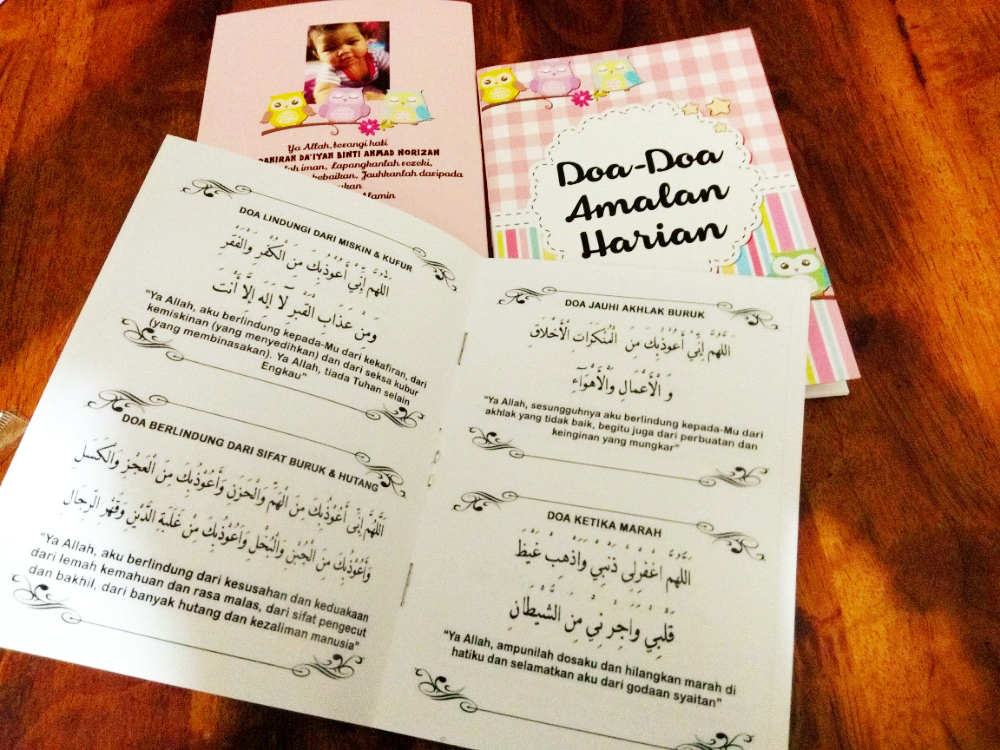 Ya Allah, terangi hati
DA'IYAH BINTI AHMAD NORIZAN
iman, Lapangkanlah rezeki,
kebaikan, Jauhkanlah daripada
Doa-Doa
Amalan
Harian
DOA LINDUNGI DARI MISKIN & KUFUR
اللهُمَّ إِنِّي أَعُوذُبِكَ مِنَ الْكُفْرِ وَالْفَقْرِ
وَمِنْ عَذَابِ الْقَبْرِ لَآ اِلَهَ اِلَّا أَنْتَ
"Ya Allah, aku berlindung kepada-Mu dari kekafiran, dari
kemiskinan (yang menyedihkan) dan dari seksa kubur
(yang membinasakan). Ya Allah, tiada Tuhan selain
Engkau"
DOA BERLINDUNG DARI SIFAT BURUK & HUTANG
اللهُمَّ إِنِّى أَعُوْذُبِكَ مِنَ الْهَمِّ وَالْحَزَنِ وَأَعُوْذُبِكَ مِنَ الْعَجْزِ وَالْكَسَلِ
وَأَعُوْذُبِكَ مِنَ الْجُبْنِ وَالْبُخْلِ وَأَعُوْذُبِكَ مِنْ غَلَبَةِ الدَّيْنِ وَقَهْرِ الرِّجَالِ
"Ya Allah, aku berlindung dari kesusahan dan keduakaan
dari lemah kemahuan dan rasa malas, dari sifat pengecut
dan bakhil, dari banyak hutang dan kezaliman manusia"
DOA JAUHI AKHLAK BURUK
اللَّهُمَّ إِنِّي أَعُوذُبِكَ مِنَ الْمُنْكَرَاتِ الْأَخْلَاقِ
وَ الْأَعْمَالِ وَالْأَهْوَآءِ
"Ya Allah, sesungguhnya aku berlindung kepada-Mu dari
akhlak yang tidak baik, begitu juga dari perbuatan dan
keinginan yang mungkar"
DOA KETIKA MARAH
اَللَّهُمَّ اغْفِرْلِى ذَنْبِيْ وَاذْهِبْ غَيْظَ
قَلْبِيْ وَاَجِرْ نِيْ مِنَ الشَّيْطَانِ
"Ya Allah, ampunilah dosaku dan hilangkan marah di
hatiku dan selamatkan aku dari godaan syaitan"